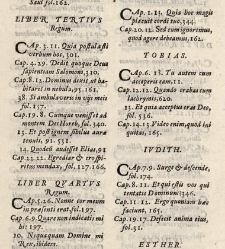 Saul fol. 162.
LIBER TERTIVS
Regum.
CAp. 3. 11. Quia postulasti
verbum hoc, 501.
Cap. 4. 29. Dedit quoque Deus
sapientiam Salomoni, 310.
8. 12. Dominus dixit, ut habi-
taret in nebula, 163.
38 Stambulavers in vijs meis
fol. 157.
Cap. 19. 8. Cumque venisset ad
montem Dei Horeb, fol. 340.
13. Et post ignem sibilus auræ
tenuis, 91. 531.
14. Quod cũ audisset Elias, 91
Cap. 22. 11. Egrediar &
mendax, fol. 127. 166.
LIBER QVARTVS
Regum.
CAp. 5. 26. Nonne cor meum
in præsenti erat fol. 197.
Cap. 6. 9. Quare non indicatis mi
hi? 197.
10. Nequaquam Domine mi
Rex, ibidem.
CAp. 1. 15. Quia hoc magis
placuit cordi tuo, 344.
Cap. 20. 12. Sed cum ignoremus,
quod agere debeamus, 162.
TOBIAS.
CAp. 6. 18. Tu autem cum
acceperis eam, 11.
Cap. 12. 12. Quando orabas cum
lachrymis, 620.
13. Et quia acceptus eras Deo,
fol. 536.
Cap. 14. 13. Video enim, quod ini
quitas, 165.
IVDITH.
CAp. 7. 9. Surge & descende,
fol. 174.
Cap. 8. 11. Et qui estis vos qui
tentatis Dominum? 346.
Cap. 11. 12. Ergo quoniam hæc
faciunt, 165.
Cap. 19. 17. Defecit anima eius,
fol. 31.
ESTHER.